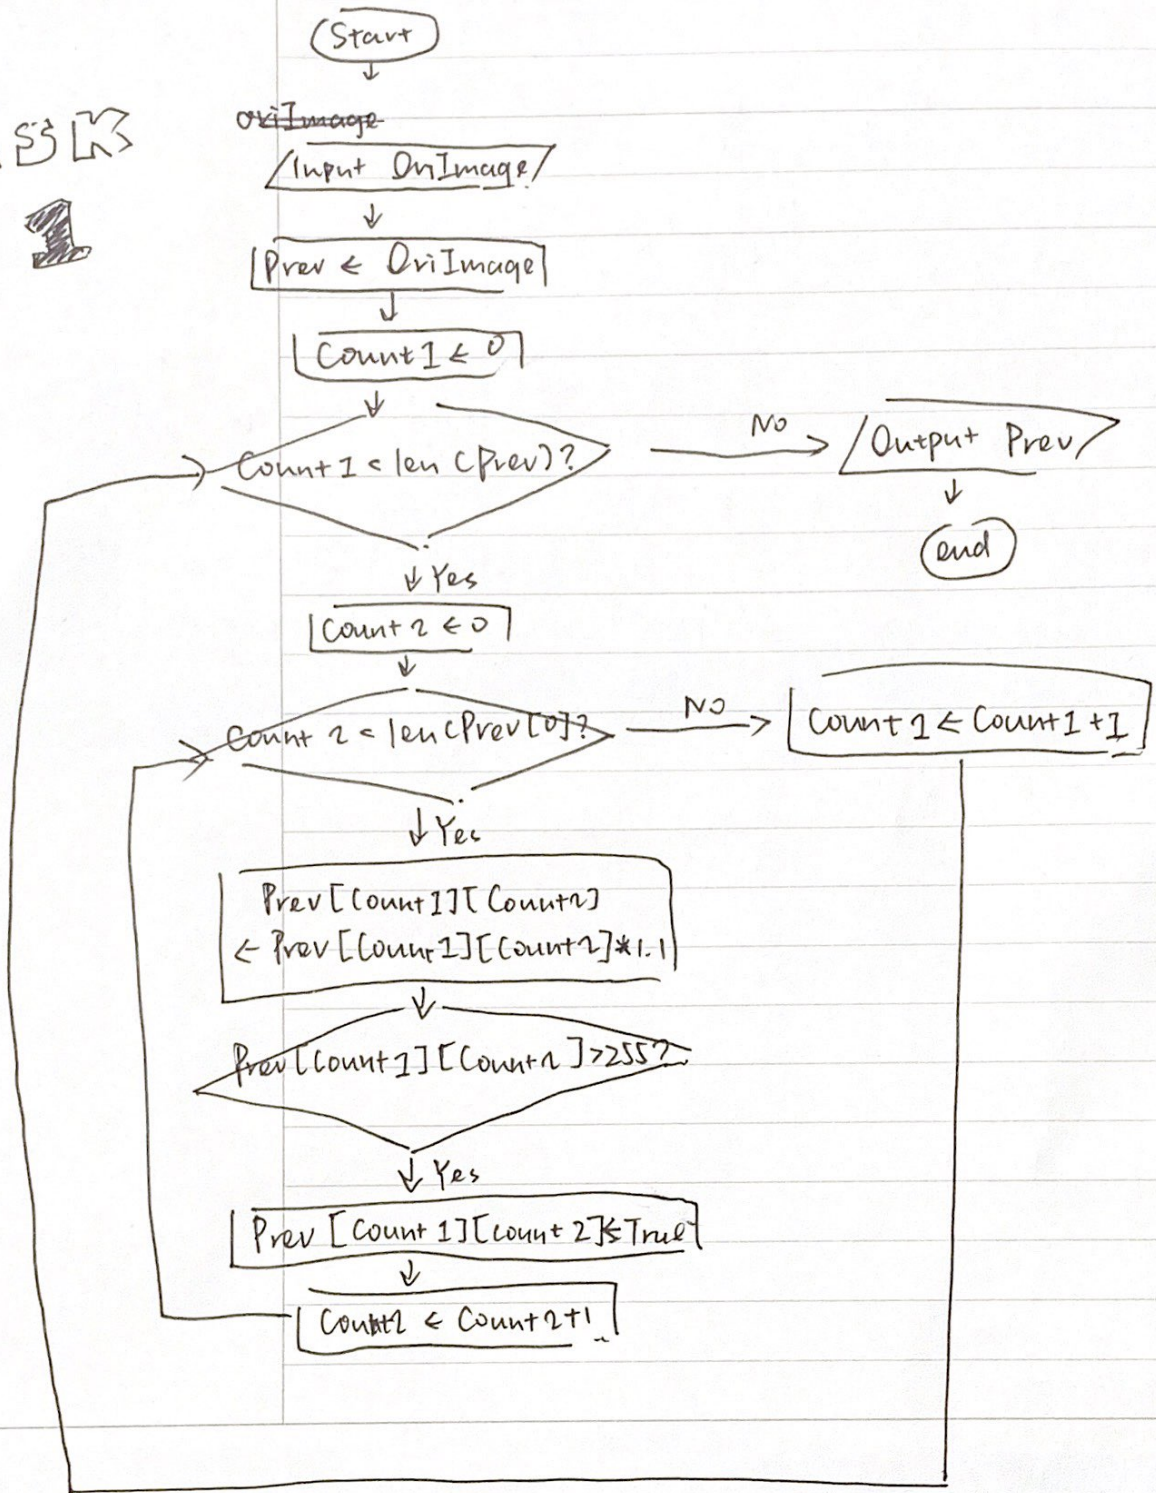 Start
SK
1
oriImage
Input OriImage
Prev ← OriImage
Count1 ← 0
Count1 < len(Prev)?
No
Output Prev
end
Yes
Count2 ← 0
Count2 < len(Prev[0]?
No
Count1 ← Count1+1
Yes
Prev[Count1][Count2]
← Prev[Count1][Count2]*1.1
Prev[Count1][Count2]>255?
Yes
Prev[Count1][Count2]← True
Count2 ← Count2+1